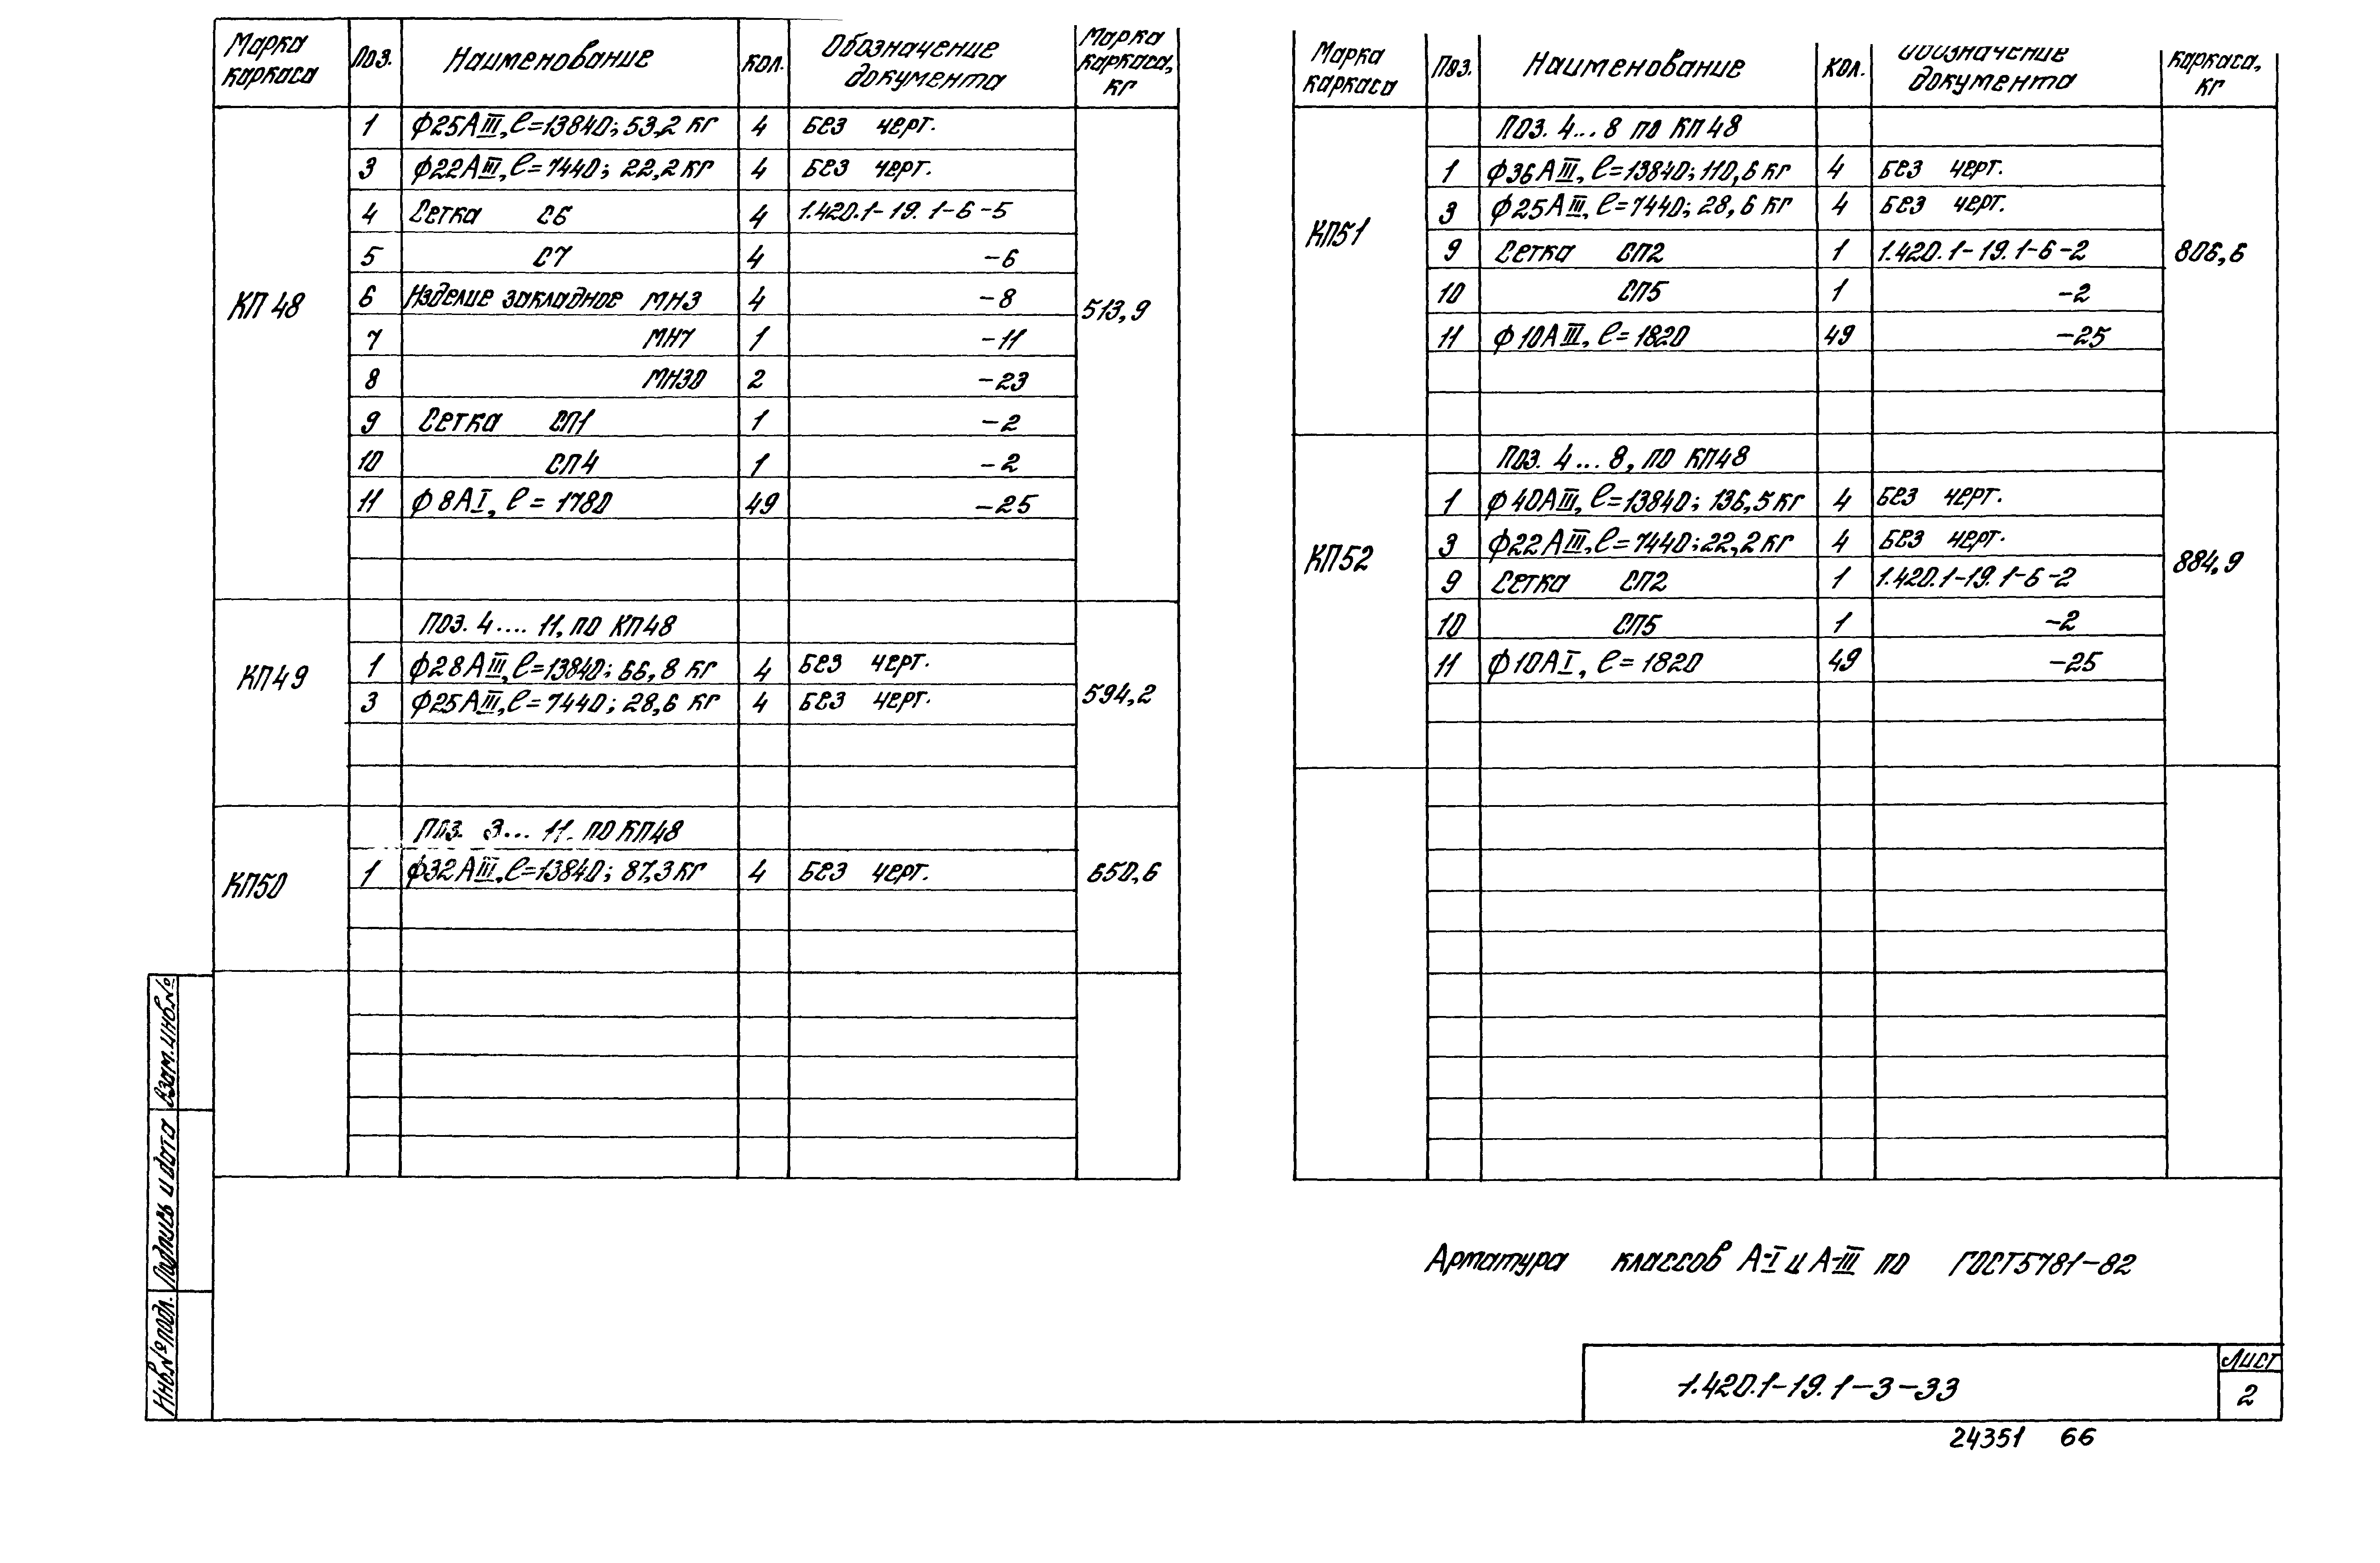 Марка каркаса Поз. Наименование Кол. Обозначение документа Марка каркаса, кг
КП 48 513,9
1 ф25АIII, ℓ=13840; 53,2 кг 4 Без черт.
3 ф22АIII, ℓ=7440; 22,2 кг 4 Без черт.
4 Сетка С6 4 1.420.1-19. 1-6-5
5 С7 4 -6
6 Изделие закладное МН3 4 -8
7 МН7 1 -11
8 МН30 2 -23
9 Сетка СП1 1 -2
10 СП4 1 -2
11 ф8АI, ℓ= 1780 49 -25
КП49 594,2
Поз. 4.... 11. по КП48
1 ф28АIII, ℓ=13840; 66,8 кг 4 Без черт.
3 ф25АIII, ℓ=7440; 28,6 кг 4 Без черт.
КП50 650,6
Поз. 3... 11. по КП48
1 ф32АIII, ℓ=13840; 87,3 кг 4 Без черт.
Марка каркаса Поз. Наименование Кол. Обозначение документа каркаса, кг
КП51 806,6
Поз. 4...8 по КП48
1 ф36АIII, ℓ=13840; 110,6 кг 4 Без черт.
3 ф25АIII, ℓ=7440; 28,6 кг 4 Без черт.
9 Сетка СП2 1 1.420.1-19. 1-6-2
10 СП5 1 -2
11 ф10АIII, ℓ=1820 49 -25
КП52 884,9
Поз. 4...8, по КП48
1 ф40АIII, ℓ=13840; 136,5 кг 4 Без черт.
3 ф22АIII, ℓ=7440; 22,2 кг 4 Без черт.
9 Сетка СП2 1 1.420.1-19. 1-6-2
10 СП5 1 -2
11 ф10АI, ℓ= 1820 49 -25
Арматура классов А-I и А-III по ГОСТ5781-82
Взам.инв.№
Подпись и дата
Инв.№подл.
1.420.1-19. 1-3-33
Лист
2
24351 66